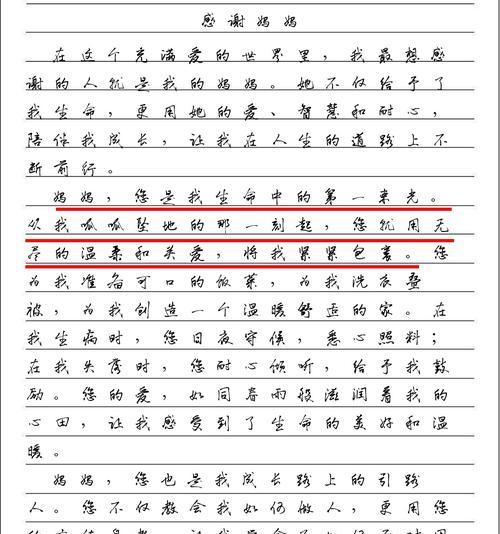 感谢妈妈
在这个充满爱的世界里，我最想感
谢的人就是我的妈妈。她不仅给予了
我生命，更用她的爱、智慧和耐心，
陪伴我成长，让我在人生的道路上不
断前行。
妈妈，您是我生命中的第一束光。
从我呱呱坠地的那一刻起，您就用无
尽的温柔和关爱，将我紧紧包裹。您
为我准备可口的饭菜，为我洗衣叠
被，为我创造一个温暖舒适的家。在
我生病时，您日夜守候，悉心照料；
在我失落时，您耐心倾听，给予我鼓
励。您的爱，如同春雨般滋润着我的
心田，让我感受到了生命的美好和温
暖。
妈妈，您也是我成长路上的引路
人。您不仅教会我如何做人，更用您